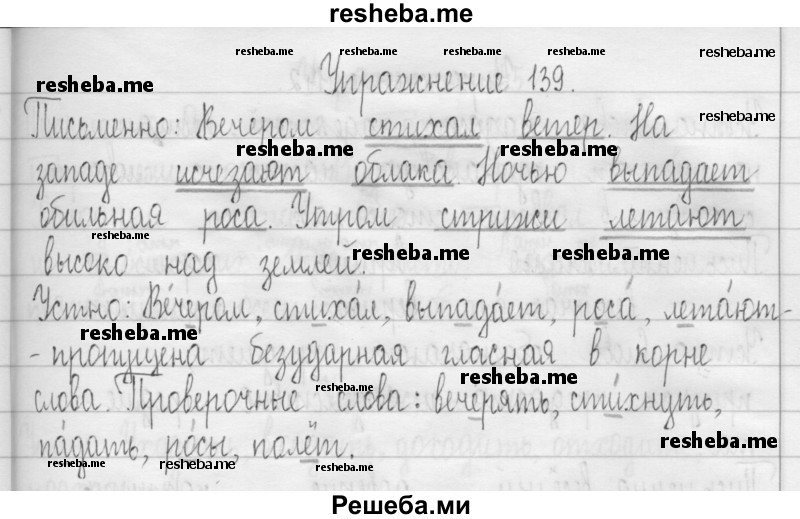 resheba.me
resheba.me resheba.me resheba.me resheba.me resheba.me
Упражнение 139.
resheba.me resheba.me
Письменно: Вечером стихал ветер. На
resheba.me resheba.me
западе исчезают облака. Ночью выпадает
обильная роса. Утром стрижи летают
resheba.me resheba.me resheba.me
высоко над землей.
Устно: Вечером, стиха́л, выпада́ет, роса́, лета́ют-
resheba.me
- пропущена безударная гласная в корне
resheba.me resheba.me
слова. Проверочные слова: вечеря́ть, сти́хнуть,
resheba.me
па́дать, ро́сы, полёт.
resheba.me resheba.me resheba.me
Решеба.ми